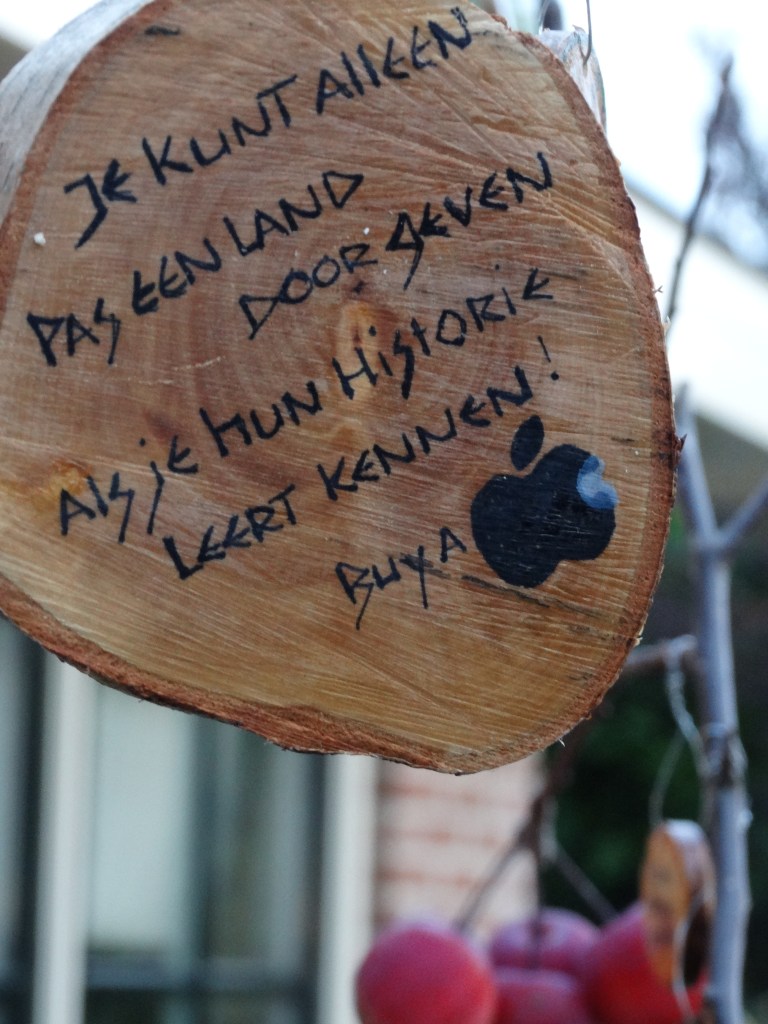 JE KUNT AllEEN
PAS EEN LAND
DOORGEVEN
AlS jE HUN HiStORiE
LEERT KENNEN!
BUY A